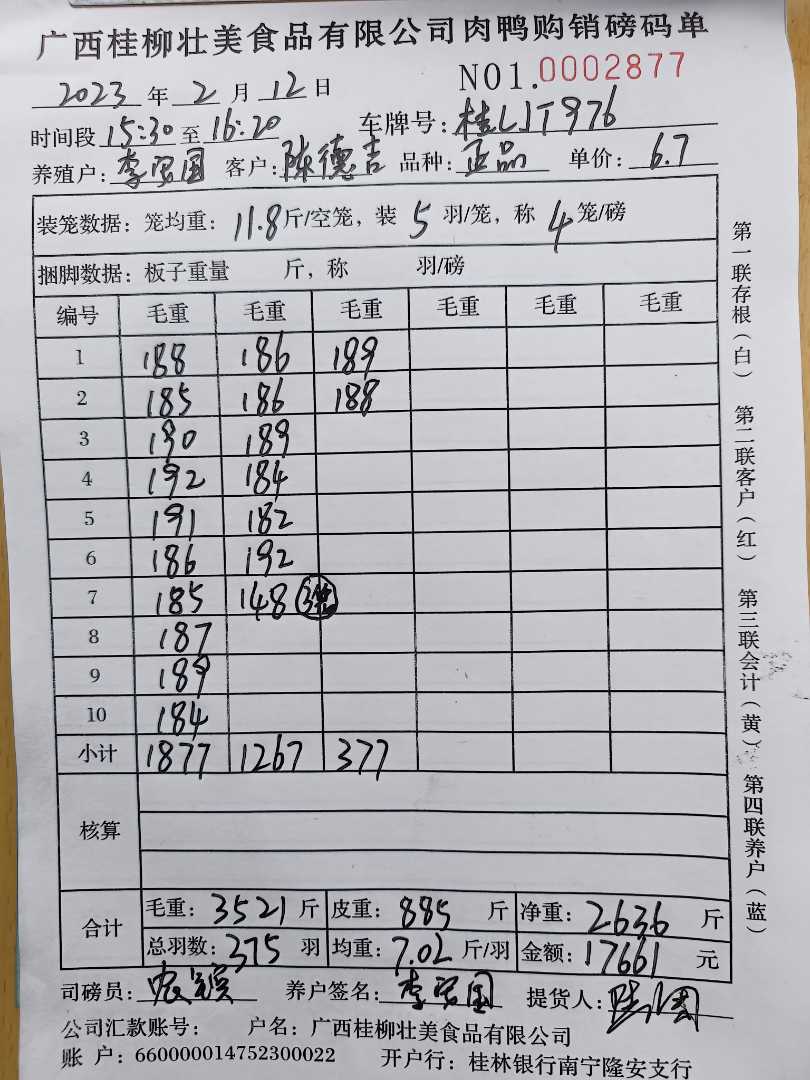 广西桂柳壮美食品有限公司肉鸭购销磅码单
2023 年 2 月 12 日 NO1.0002877
时间段 15:30 至 16:20 车牌号: 桂LJT976
养殖户: 李 国 客户: 陈德吉 品种: 正品 单价: 6.7
装笼数据: 笼均重: 11.8 斤/空笼，装 5 羽/笼，称 4 笼/磅
捆脚数据: 板子重量 斤，称 羽/磅
编号 毛重 毛重 毛重 毛重 毛重 毛重
1 188 186 189
2 185 186 188
3 190 189
4 192 184
5 191 182
6 186 192
7 185 148
8 187
9 189
10 184
小计 1877 1267 377
核算
合计 毛重: 3521 斤 皮重: 885 斤 净重: 2636 斤
总羽数: 375 羽 均重: 7.02 斤/羽 金额: 17661 元
司磅员: 养户签名: 李 国 提货人:
公司汇款账号: 户名: 广西桂柳壮美食品有限公司
账 户: 660000014752300022 开户行: 桂林银行南宁隆安支行
第一联存根（白） 第二联客户（红） 第三联会计（黄） 第四联养户（蓝）